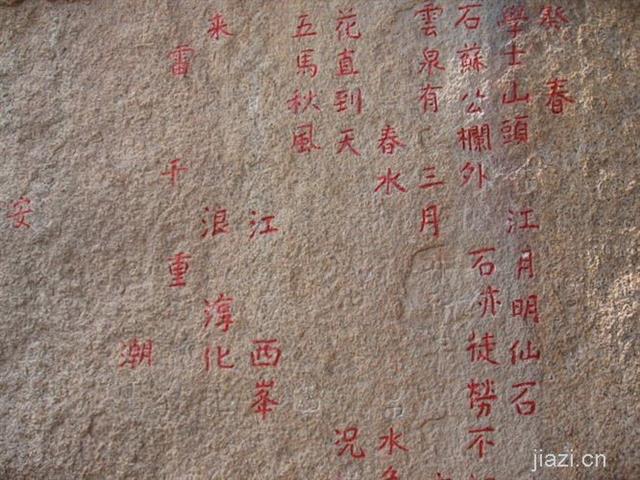 癸春
學士山頭江月明仙石
石蘇公欄外石亦徒勞不
雲泉有三月
春水水
花直到天況
五馬秋風
江西峯
来浪淳化
雷平重
潮
安
jiazi.cn